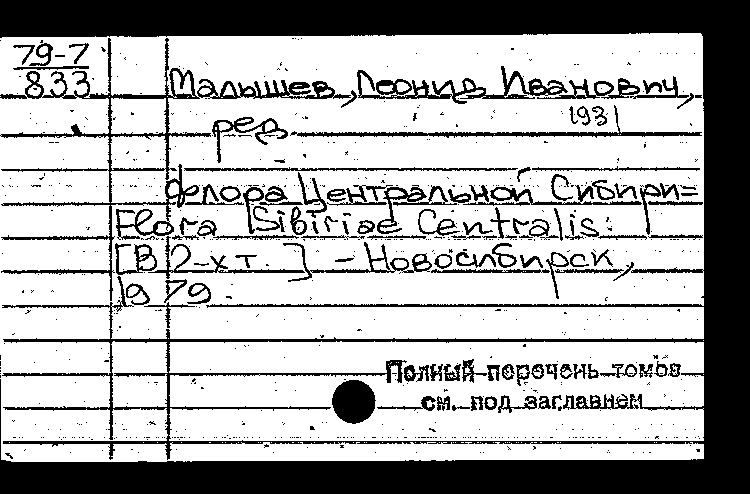 79-7
833
Малышев, Леонид Иванович,
1931
ред.
Флора Центральной Сибири=
Flora Sibiriae Centralis:
[В 2-х т. ] - Новосибирск,
1979.
Полный перечень томов
см. под заглавием